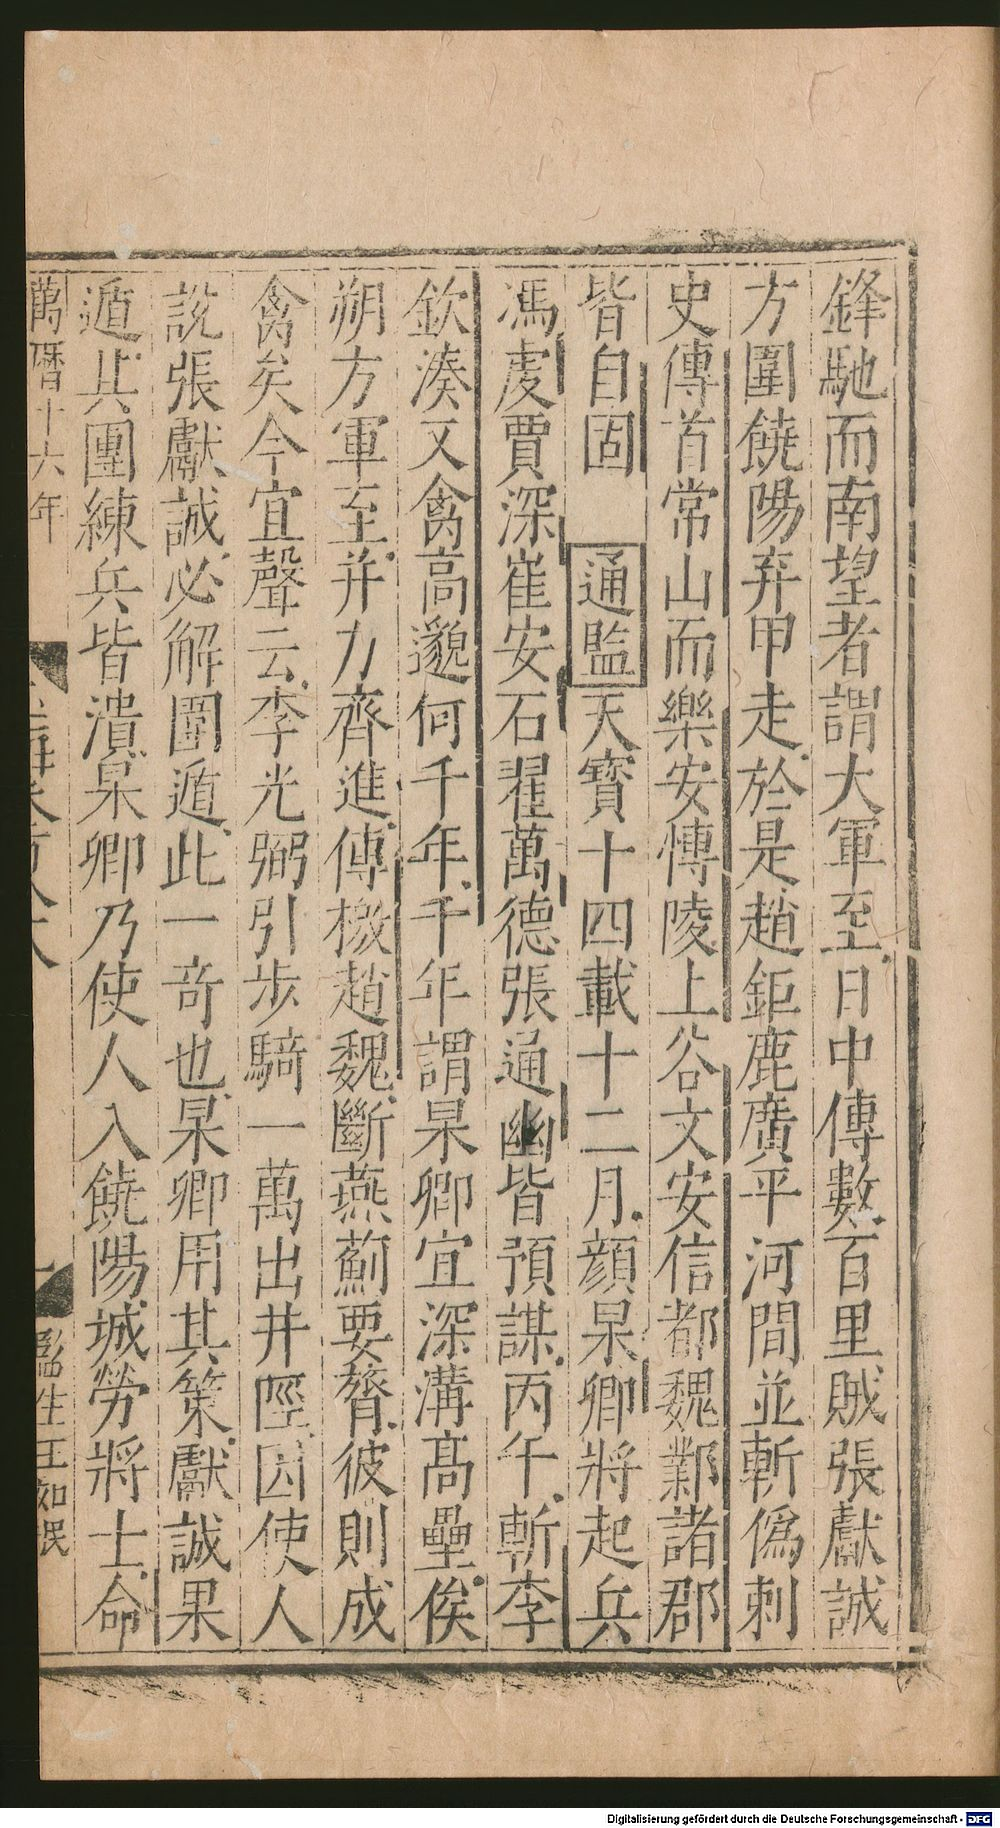 鋒馳而南望者謂大軍至日中傳數百里賊張獻誠
方圍饒陽弃甲走於是趙鉅鹿廣平河間並斬僞刺
史傳首常山而樂安愽陵上谷文安信都魏鄴諸郡
皆自固 通監天寶十四載十二月顏杲卿將起兵
馮䖍賈深崔安石翟萬德張通幽皆預謀丙午斬李
欽湊又禽高邈何千年千年謂杲卿宜深溝髙壘俟
朔方軍至并力齊進傳檄趙魏斷燕薊要膂彼則成
禽矣今宜聲云李光弼引步騎一萬出井陘因使人
說張獻誠必解圍遁此一竒也杲卿用其策獻誠果
遁其團練兵皆潰杲卿乃使人入饒陽城勞將士命
萬曆十六年
監生王如珉
Digitalisierung gefördert durch die Deutsche Forschungsgemeinschaft - DFG